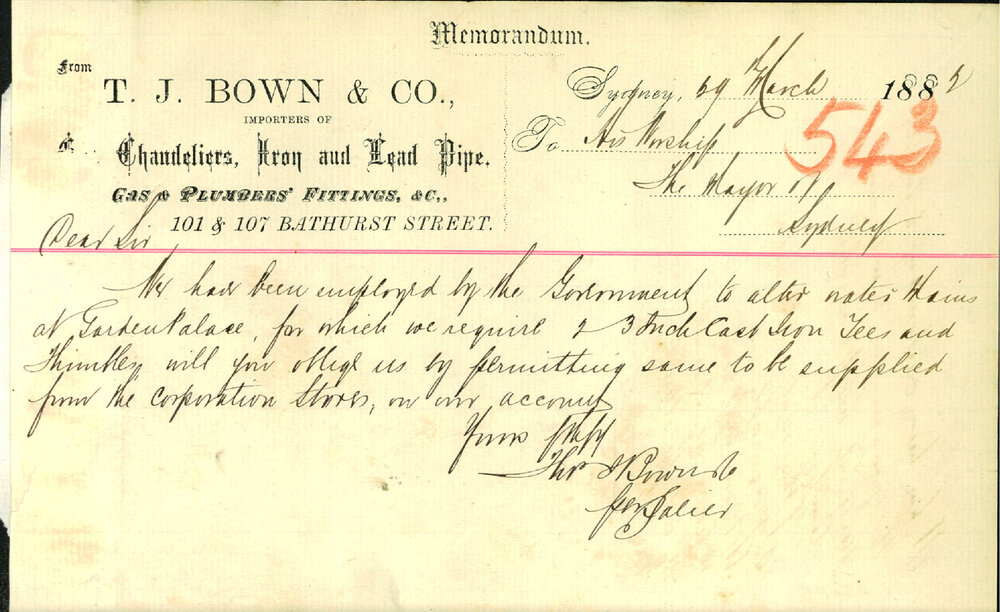 Memorandum.
From
T. J. BOWN & CO.,
IMPORTERS OF
Chandeliers, Iron and Lead Pipe.
GAS & PLUMBERS' FITTINGS, &C.,
101 & 107 BATHURST STREET.
Sydney, 29 March 1882
To His Worship
The Mayor of
Sydney
543
Dear Sir
We have been employed by the Government to alter water Mains
at Garden Palace, for which we require 2 3 Inch Cast Iron Tees and
Thimbles, will you oblige us by permitting same to be supplied
from the Corporation Stores, on our account
Yours
Thos J Bown & Co
per